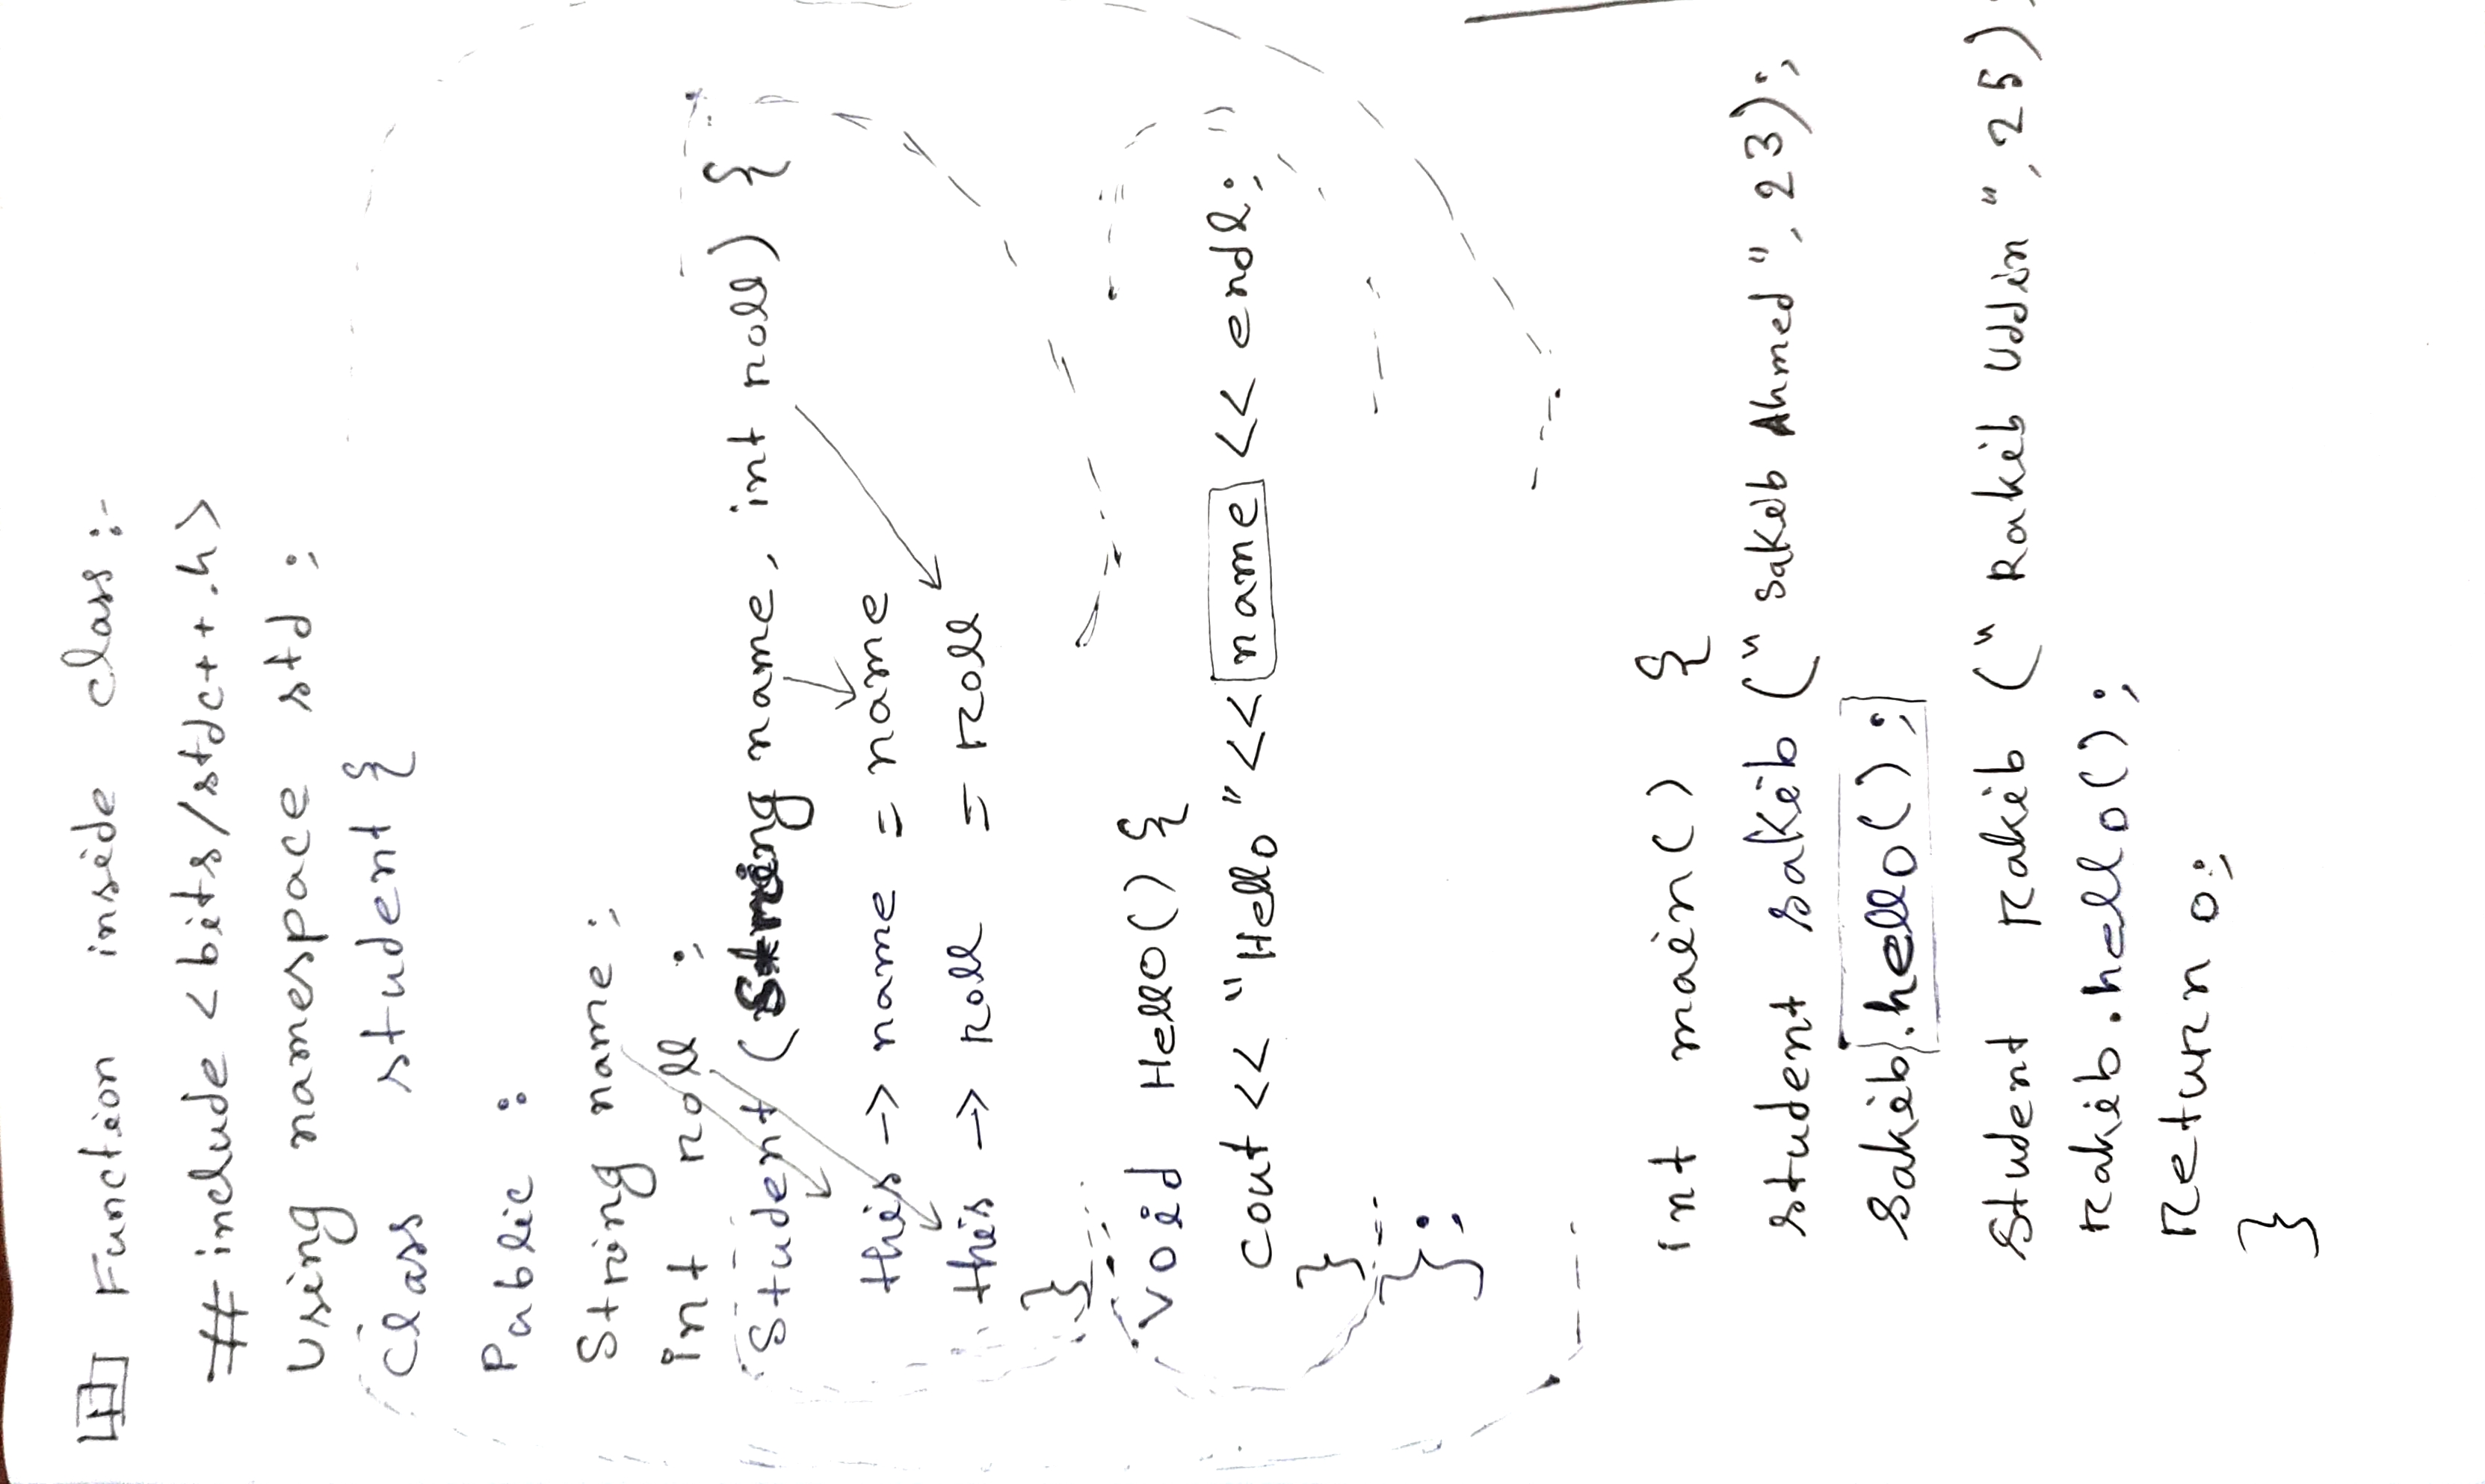 Function inside class :-
# include <bits/stdc++.h>
Using namespace std ;
Class student {
Public :
String name ;
int roll ;
Student (String name, int roll) {
this -> name = name
this -> roll = roll
}
Void Hello() {
Cout << "Hello" << name << endl ;
}
};
int main() {
student sakib ("Sakib Ahmed", 23);
Sakib.hello();
Student rakib ("Rakib Uddin", 25);
rakib.hello();
Return 0;
}